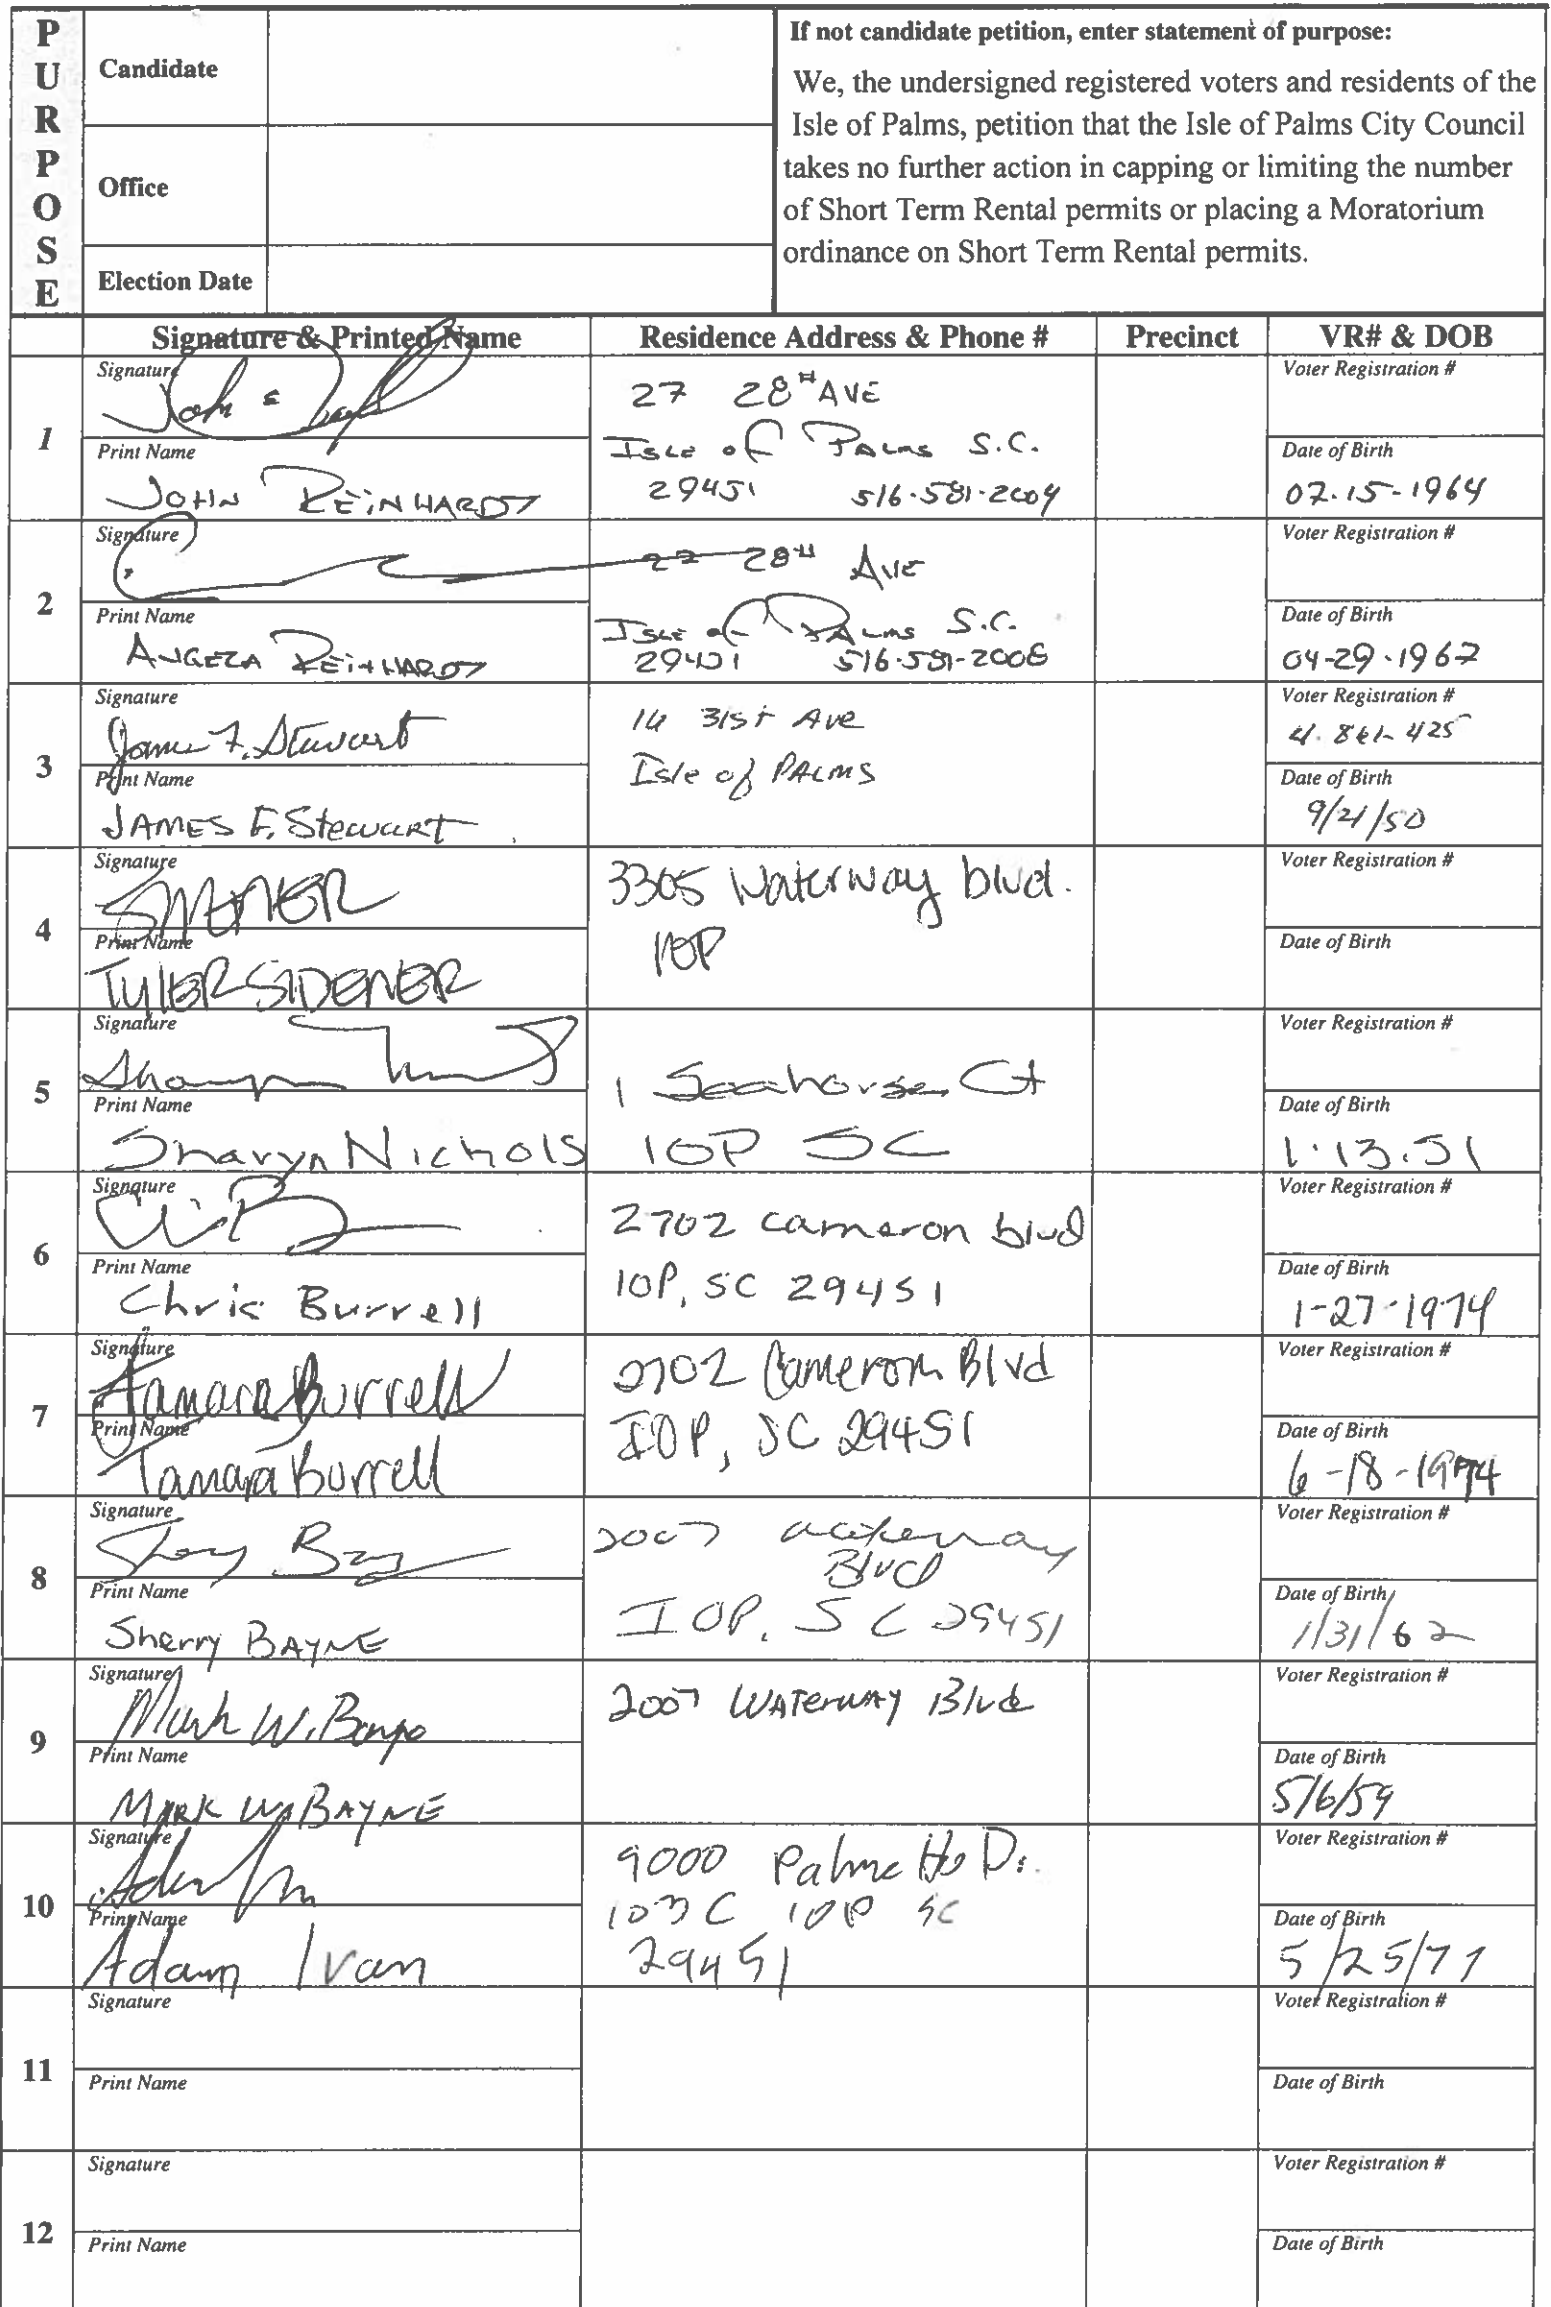 PURPOSE
Candidate
Office
Election Date
If not candidate petition, enter statement of purpose:
We, the undersigned registered voters and residents of the
Isle of Palms, petition that the Isle of Palms City Council
takes no further action in capping or limiting the number
of Short Term Rental permits or placing a Moratorium
ordinance on Short Term Rental permits.
Signature & Printed Name Residence Address & Phone # Precinct VR# & DOB
1
Signature
Print Name
JOHN REINHARDT
27 28TH AVE
ISLE of PALMS S.C.
29451 516-581-2009
Voter Registration #
Date of Birth
07-15-1964
2
Signature
Print Name
ANGELA REINHARDT
27 28TH AVE
ISLE of PALMS S.C.
29451 516-581-2008
Voter Registration #
Date of Birth
04-29-1967
3
Signature
James F. Stewart
Print Name
JAMES F. Stewart
14 31st Ave
Isle of PALMS
Voter Registration #
Date of Birth
9/21/50
4
Signature
Print Name
TYLER SIDENER
3305 Waterway blvd.
IOP
Voter Registration #
Date of Birth
5
Signature
Print Name
Sharyn Nichols
1 Seahorse Ct
IOP SC
Voter Registration #
Date of Birth
1.13.51
6
Signature
Print Name
Chris Burrell
2702 Cameron blvd
IOP, SC 29451
Voter Registration #
Date of Birth
1-27-1974
7
Signature
Tamara Burrell
Print Name
Tamara Burrell
2702 Cameron Blvd
IOP, SC 29451
Voter Registration #
Date of Birth
6-18-1974
8
Signature
Print Name
Sherry BAYNE
2007 Waterway
Blvd
IOP, SC 29451
Voter Registration #
Date of Birth
1/31/62
9
Signature
Mark W. Bayne
Print Name
MARK W. BAYNE
2007 WATERWAY Blvd
Voter Registration #
Date of Birth
5/6/59
10
Signature
Print Name
Adam Ivan
9000 Palmetto Dr.
103 C IOP SC
29451
Voter Registration #
Date of Birth
5/25/77
11
Signature
Print Name
Voter Registration #
Date of Birth
12
Signature
Print Name
Voter Registration #
Date of Birth